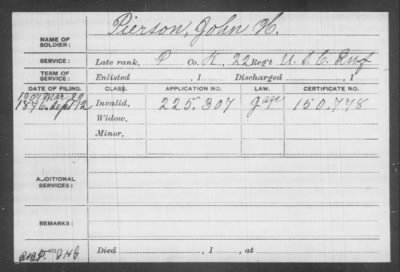 NAME OF SOLDIER: Pierson, John H.
SERVICE: Late rank, P Co. K, 22 Reg't U.S.C. Inf
TERM OF SERVICE: Enlisted , 1 Discharged , 1
DATE OF FILING. CLASS. APPLICATION NO. LAW. CERTIFICATE NO.
1907 Mar
1876 Sept 12 Invalid, 225.307 150.778
Widow,
Minor,
ADDITIONAL SERVICES:
REMARKS:
Died , 1 , at